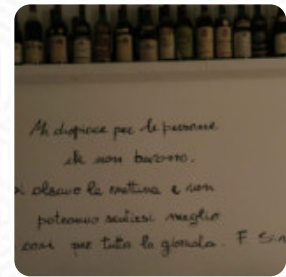 Mi dispiace per le persone
che non bevono.
si alzano la mattina e non
potranno sentirsi meglio
così per tutta la giornata. F Sin